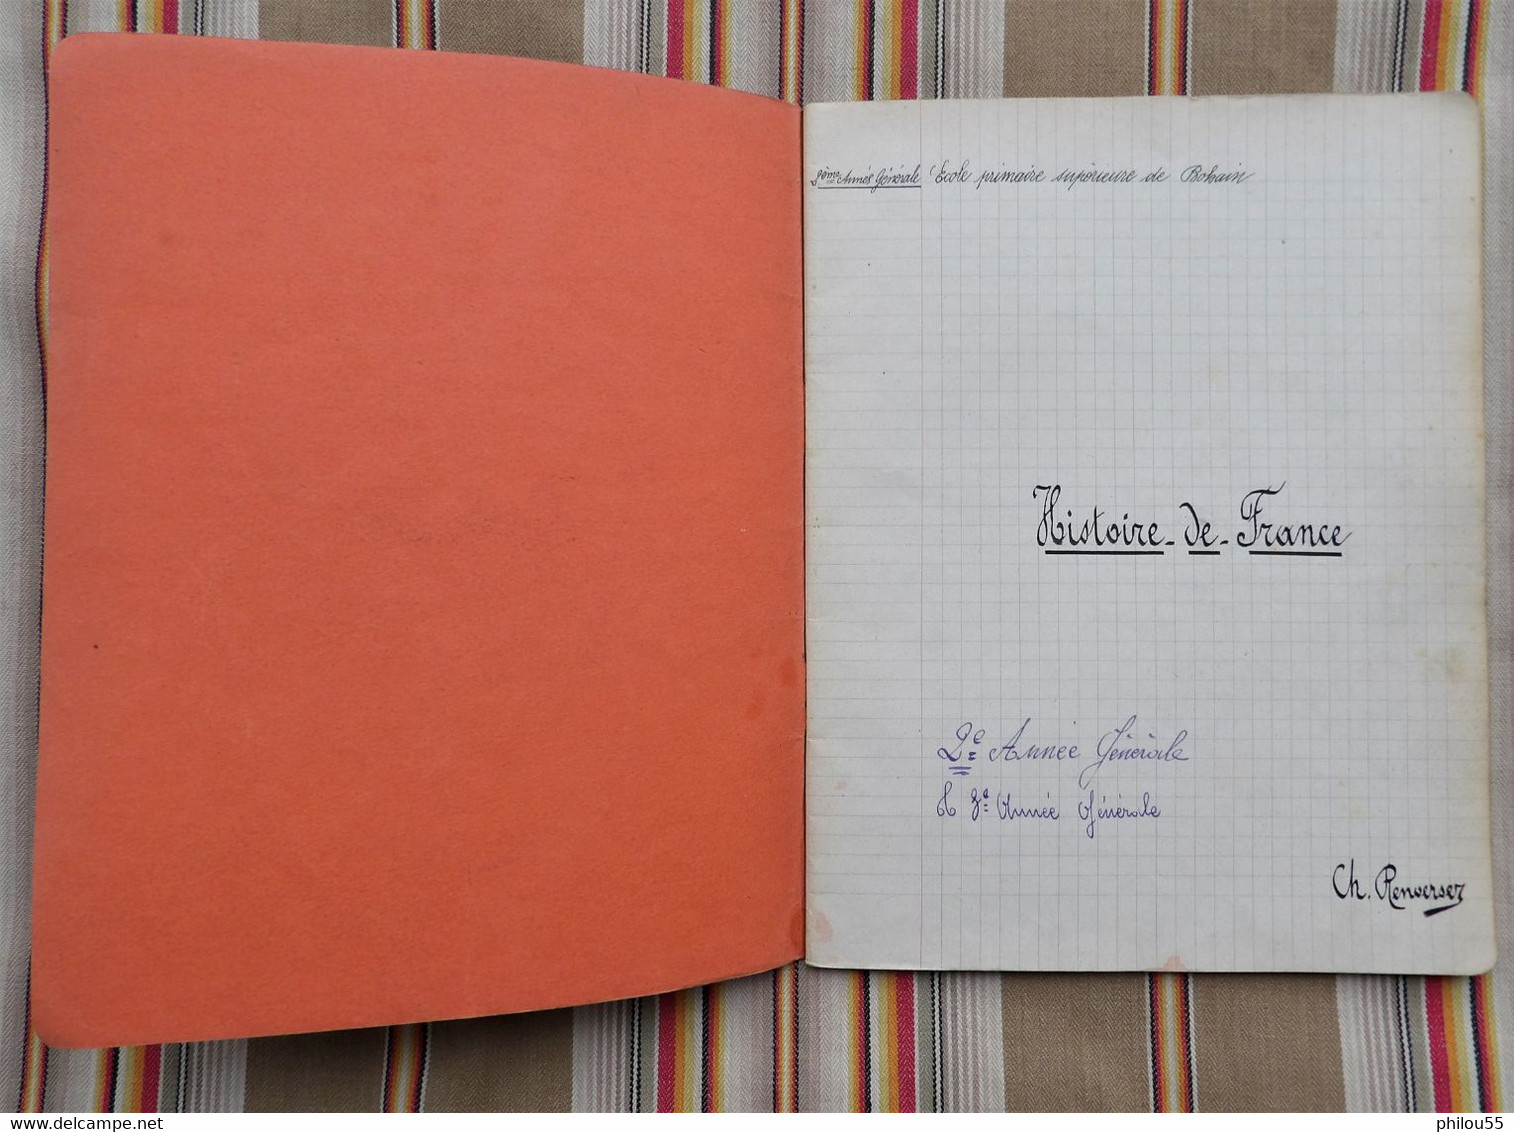 2ème Année Générale École primaire supérieure de Bohain
Histoire - de - France
2e Année Générale
& 3e Année Générale
Ch. Renverser
delcampe.net
philou55